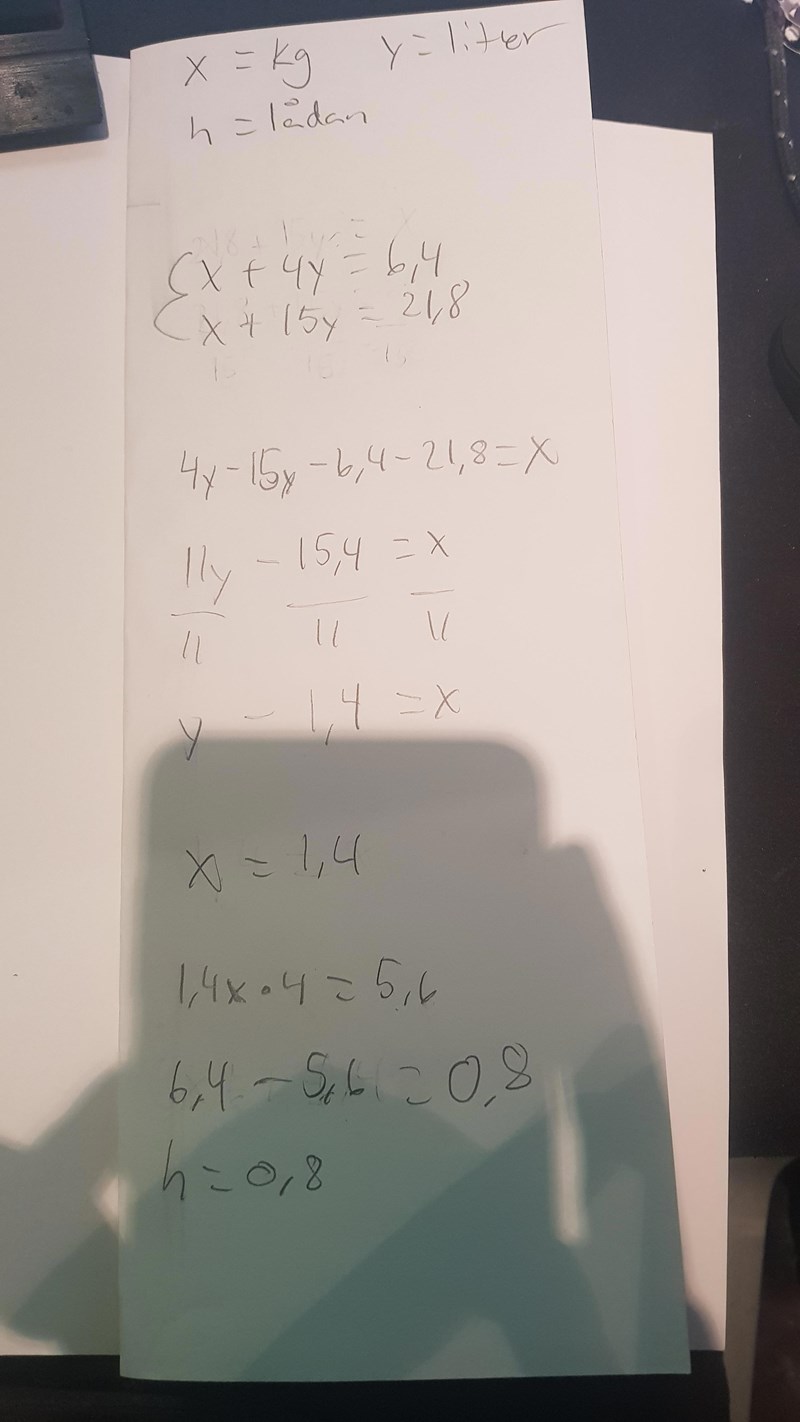 x = kg y = liter
h = lådan
x + 4y = 6,4
x + 15y = 21,8
4y - 15y - 6,4 - 21,8 = x
11y - 15,4 = x
11 11 11
y - 1,4 = x
x = 1,4
1,4x • 4 = 5,6
6,4 - 5,6 = 0,8
h = 0,8